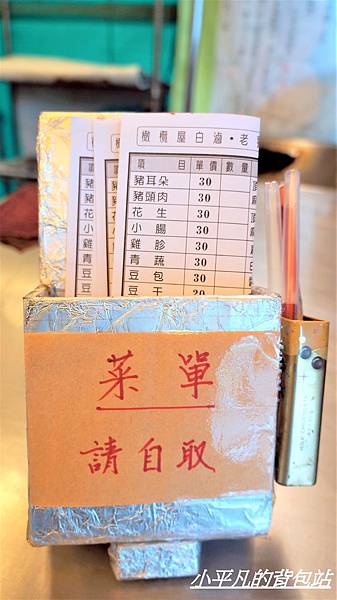 橄欖屋白滷・老
項目 單價 數量
豬耳朵 30
豬頭肉 30
花生 30
小腸 30
雞胗 30
青蔬 30
豆包 30
豆干 30
菜單
請自取
小平凡的背包站